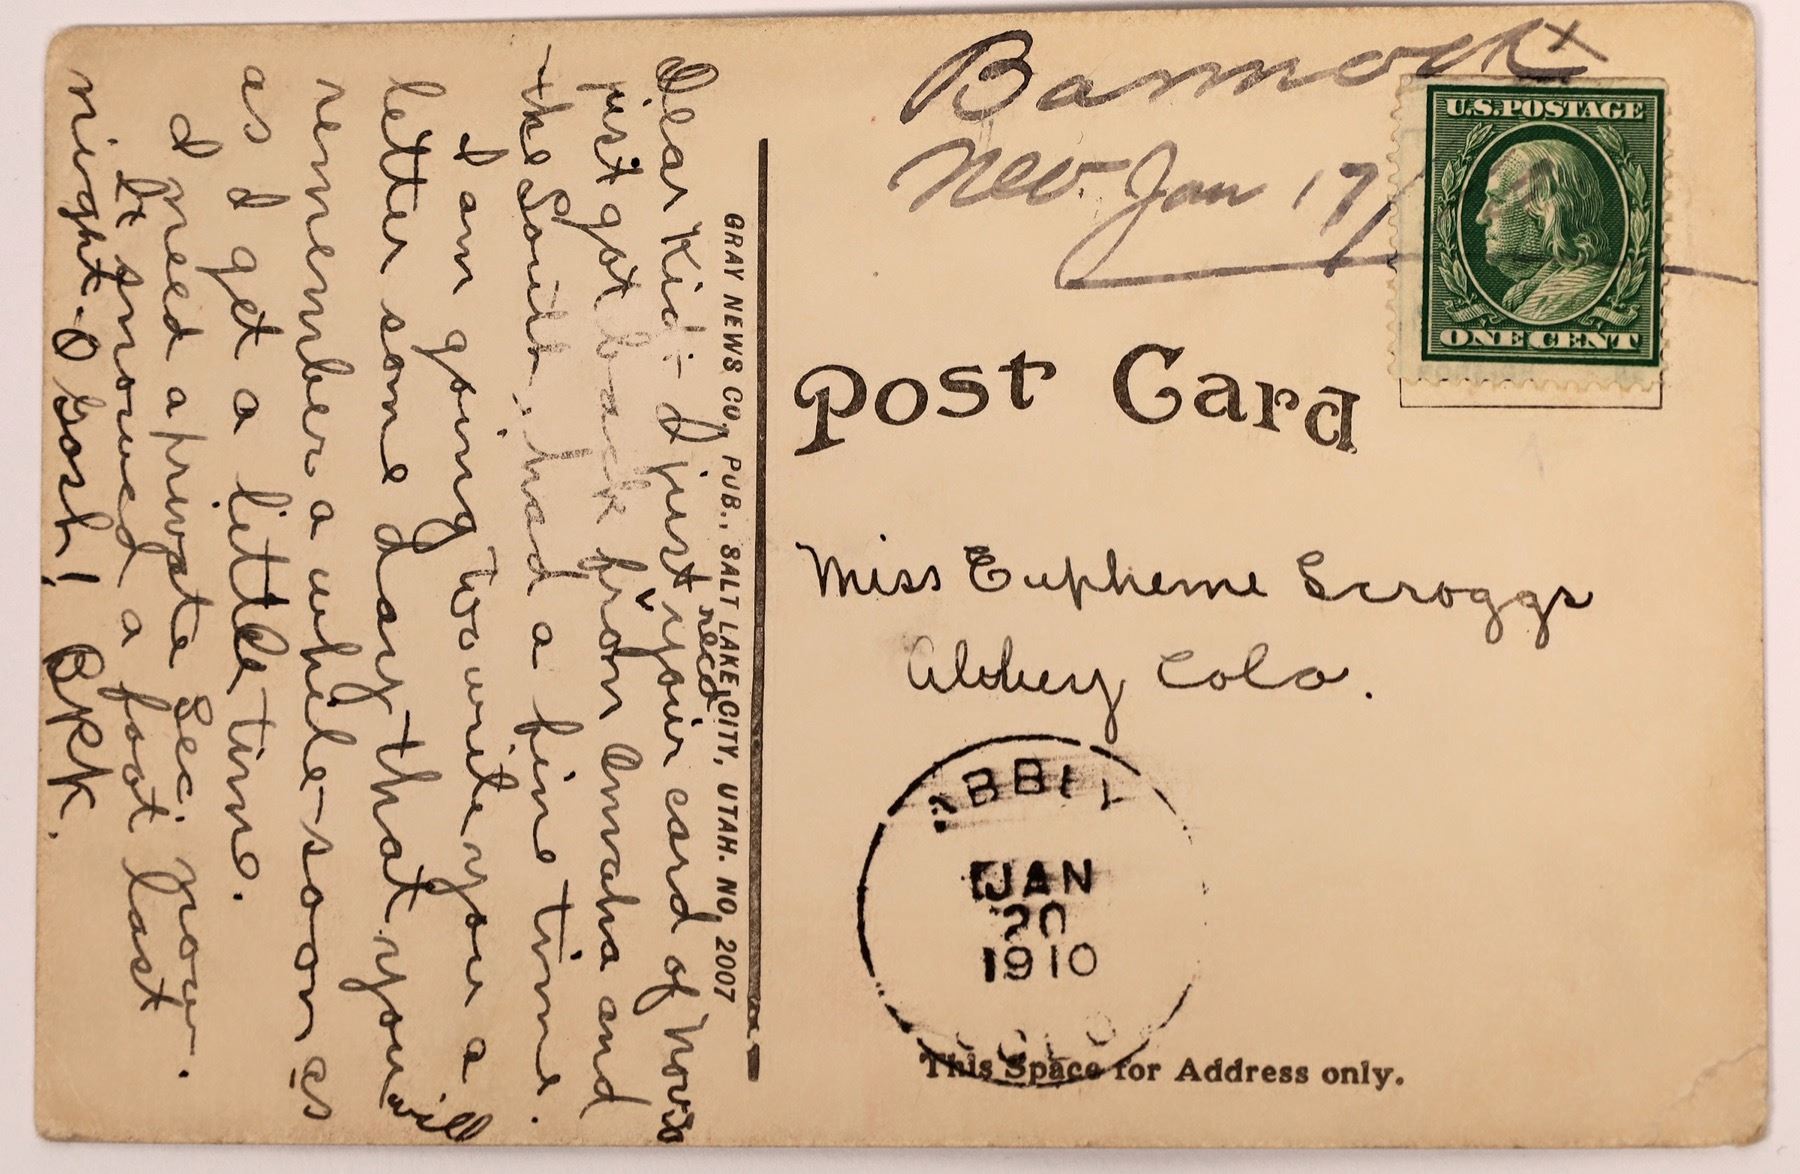 Bannock
Nev. Jan 17/
U.S. POSTAGE
ONE CENT
Post Card
Miss Eupheme Scroggs
Abbey Colo.
ABBEY
JAN
20
1910
COLO
This Space for Address only.
GRAY NEWS CO., PUB., SALT LAKE CITY, UTAH. NO. 2007
Dear Kid:- I just rec'd your card of Nov
just got back from Omaha and
the South, had a fine time.
I am going to write you a
letter some day that you will
remember a while - soon as
as I get a little time.
I need a private Sec' now.
It snowed a foot last
night - O Gosh! BRK.